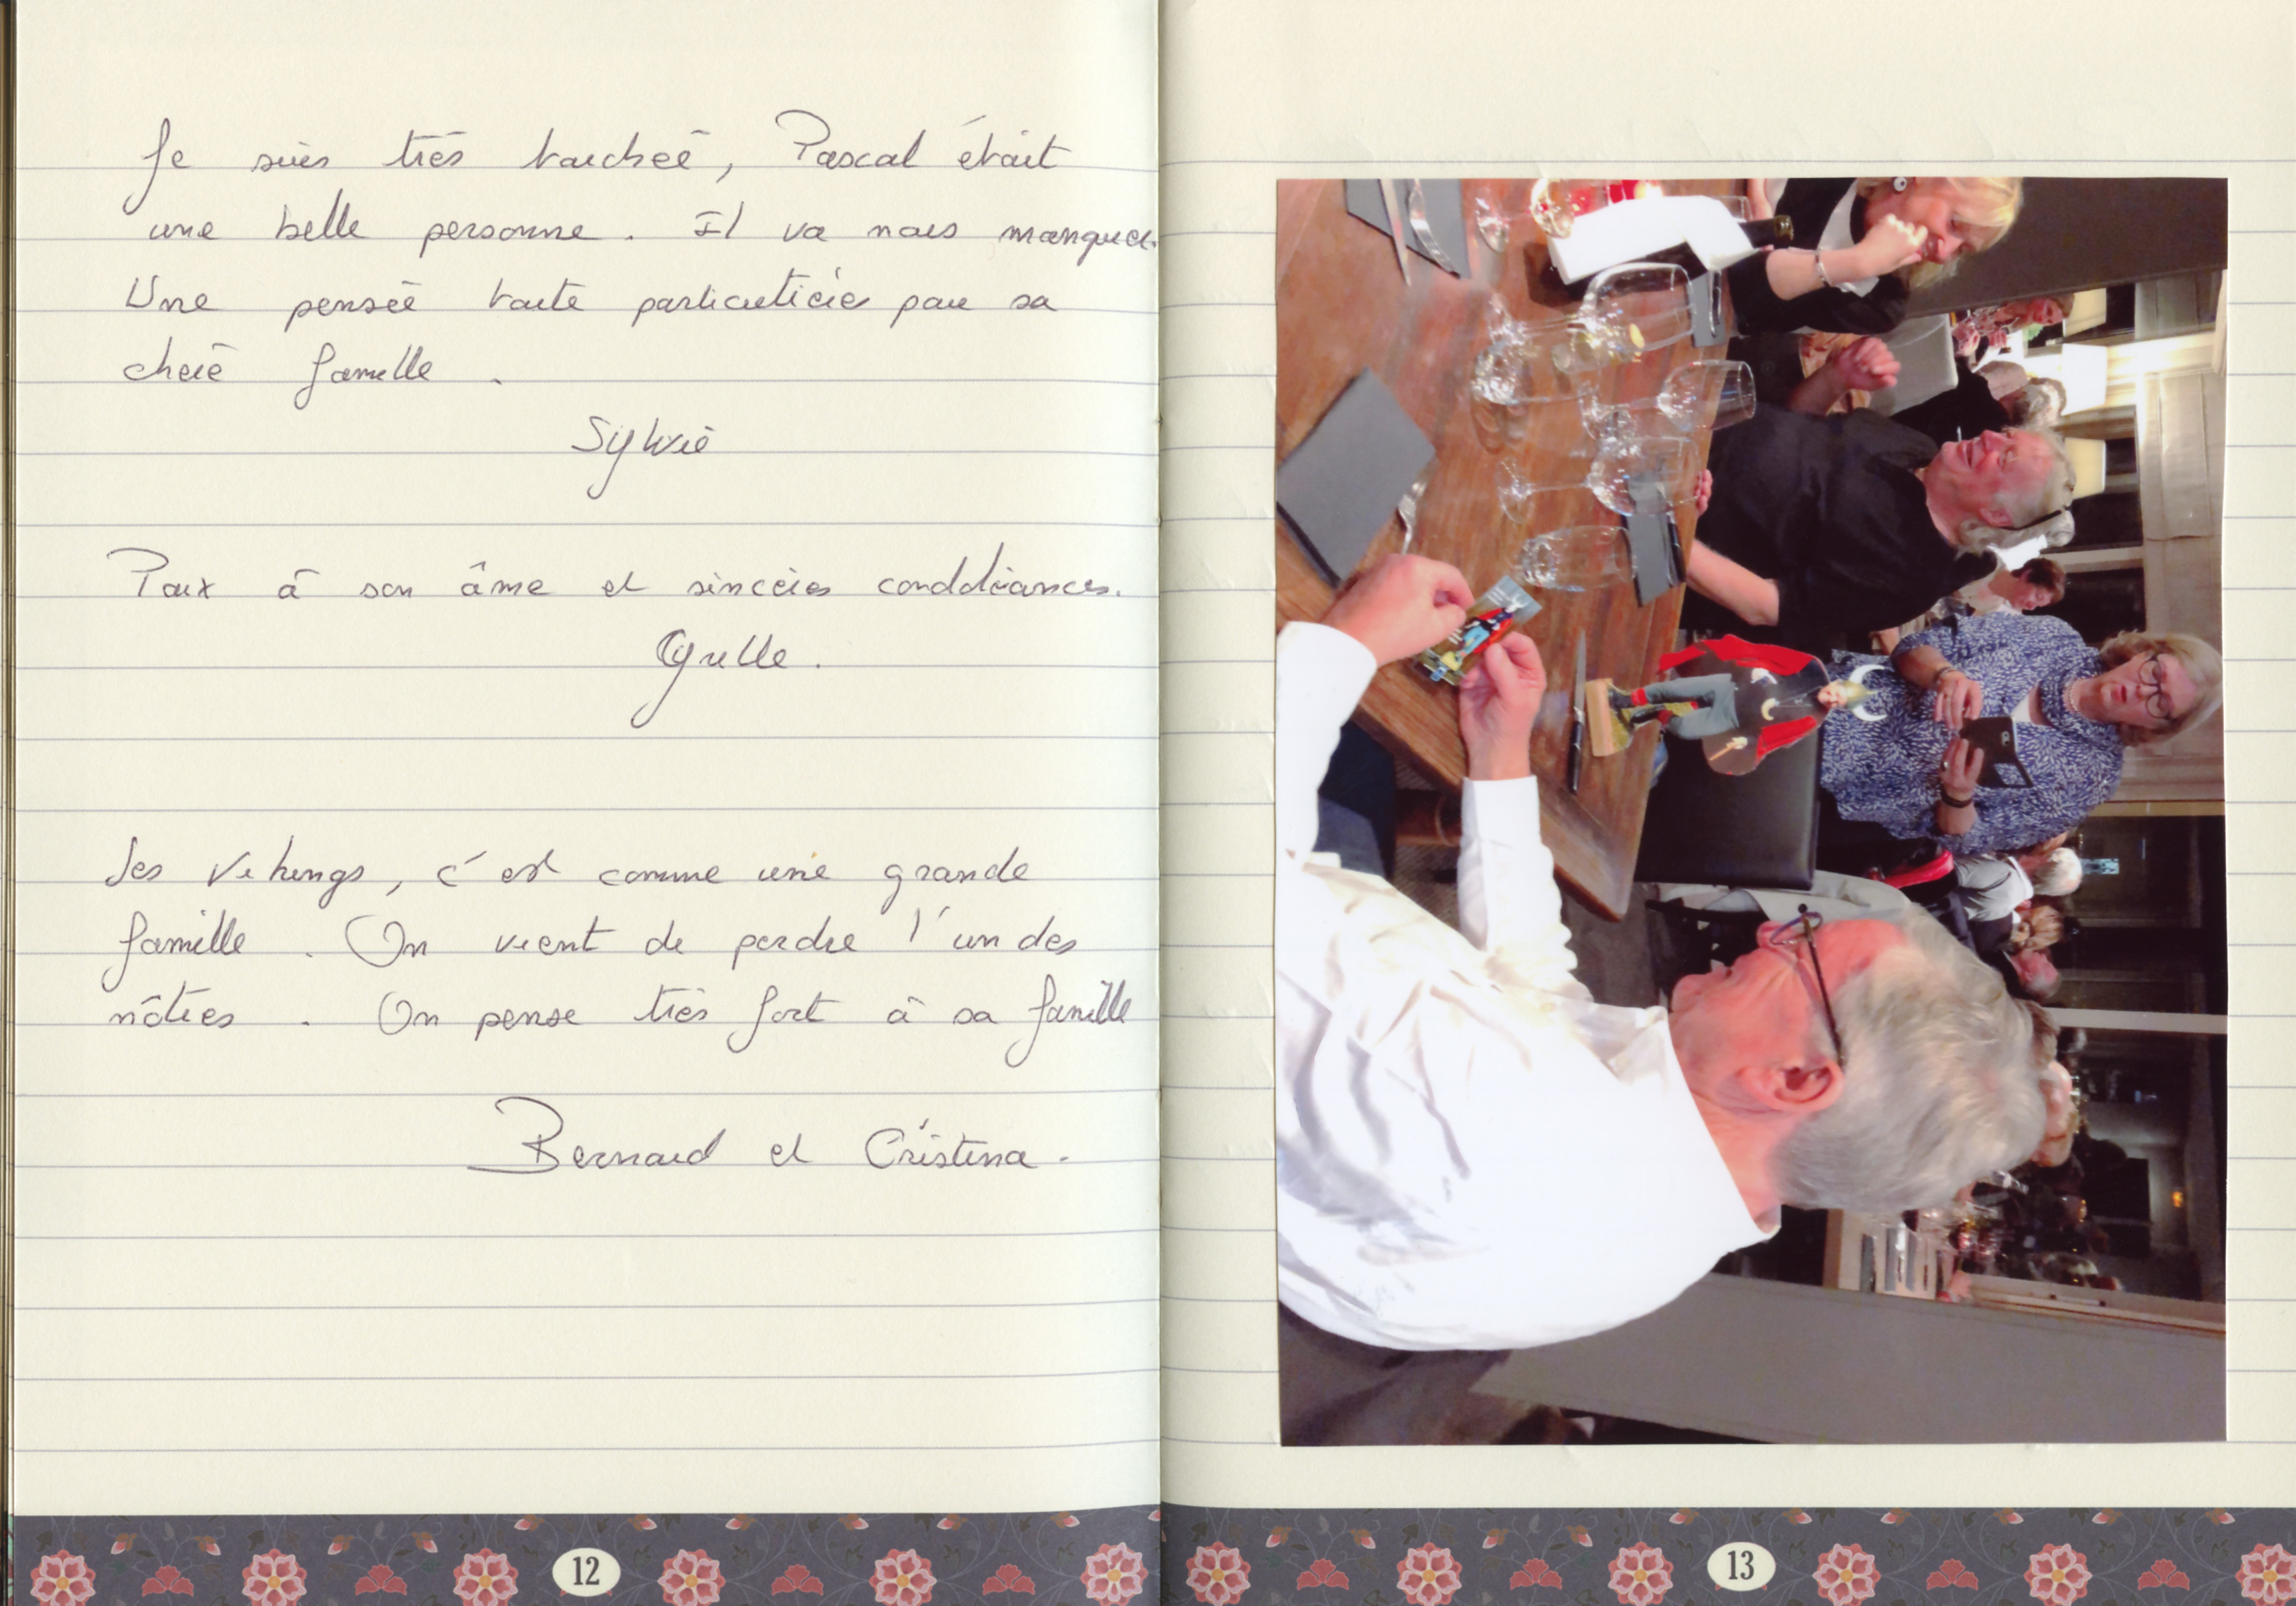 Je suis très touchée, Pascal était
une belle personne. Il va nous manquer.
Une pensée toute particulière pour sa
chère famille.
Sylvie
Paix à son âme et sincères condoléances.
Les Vikings, c'est comme une grande
famille. On vient de perdre l'un des
nôtres. On pense très fort à sa famille
Bernard et Cristina.
12
13